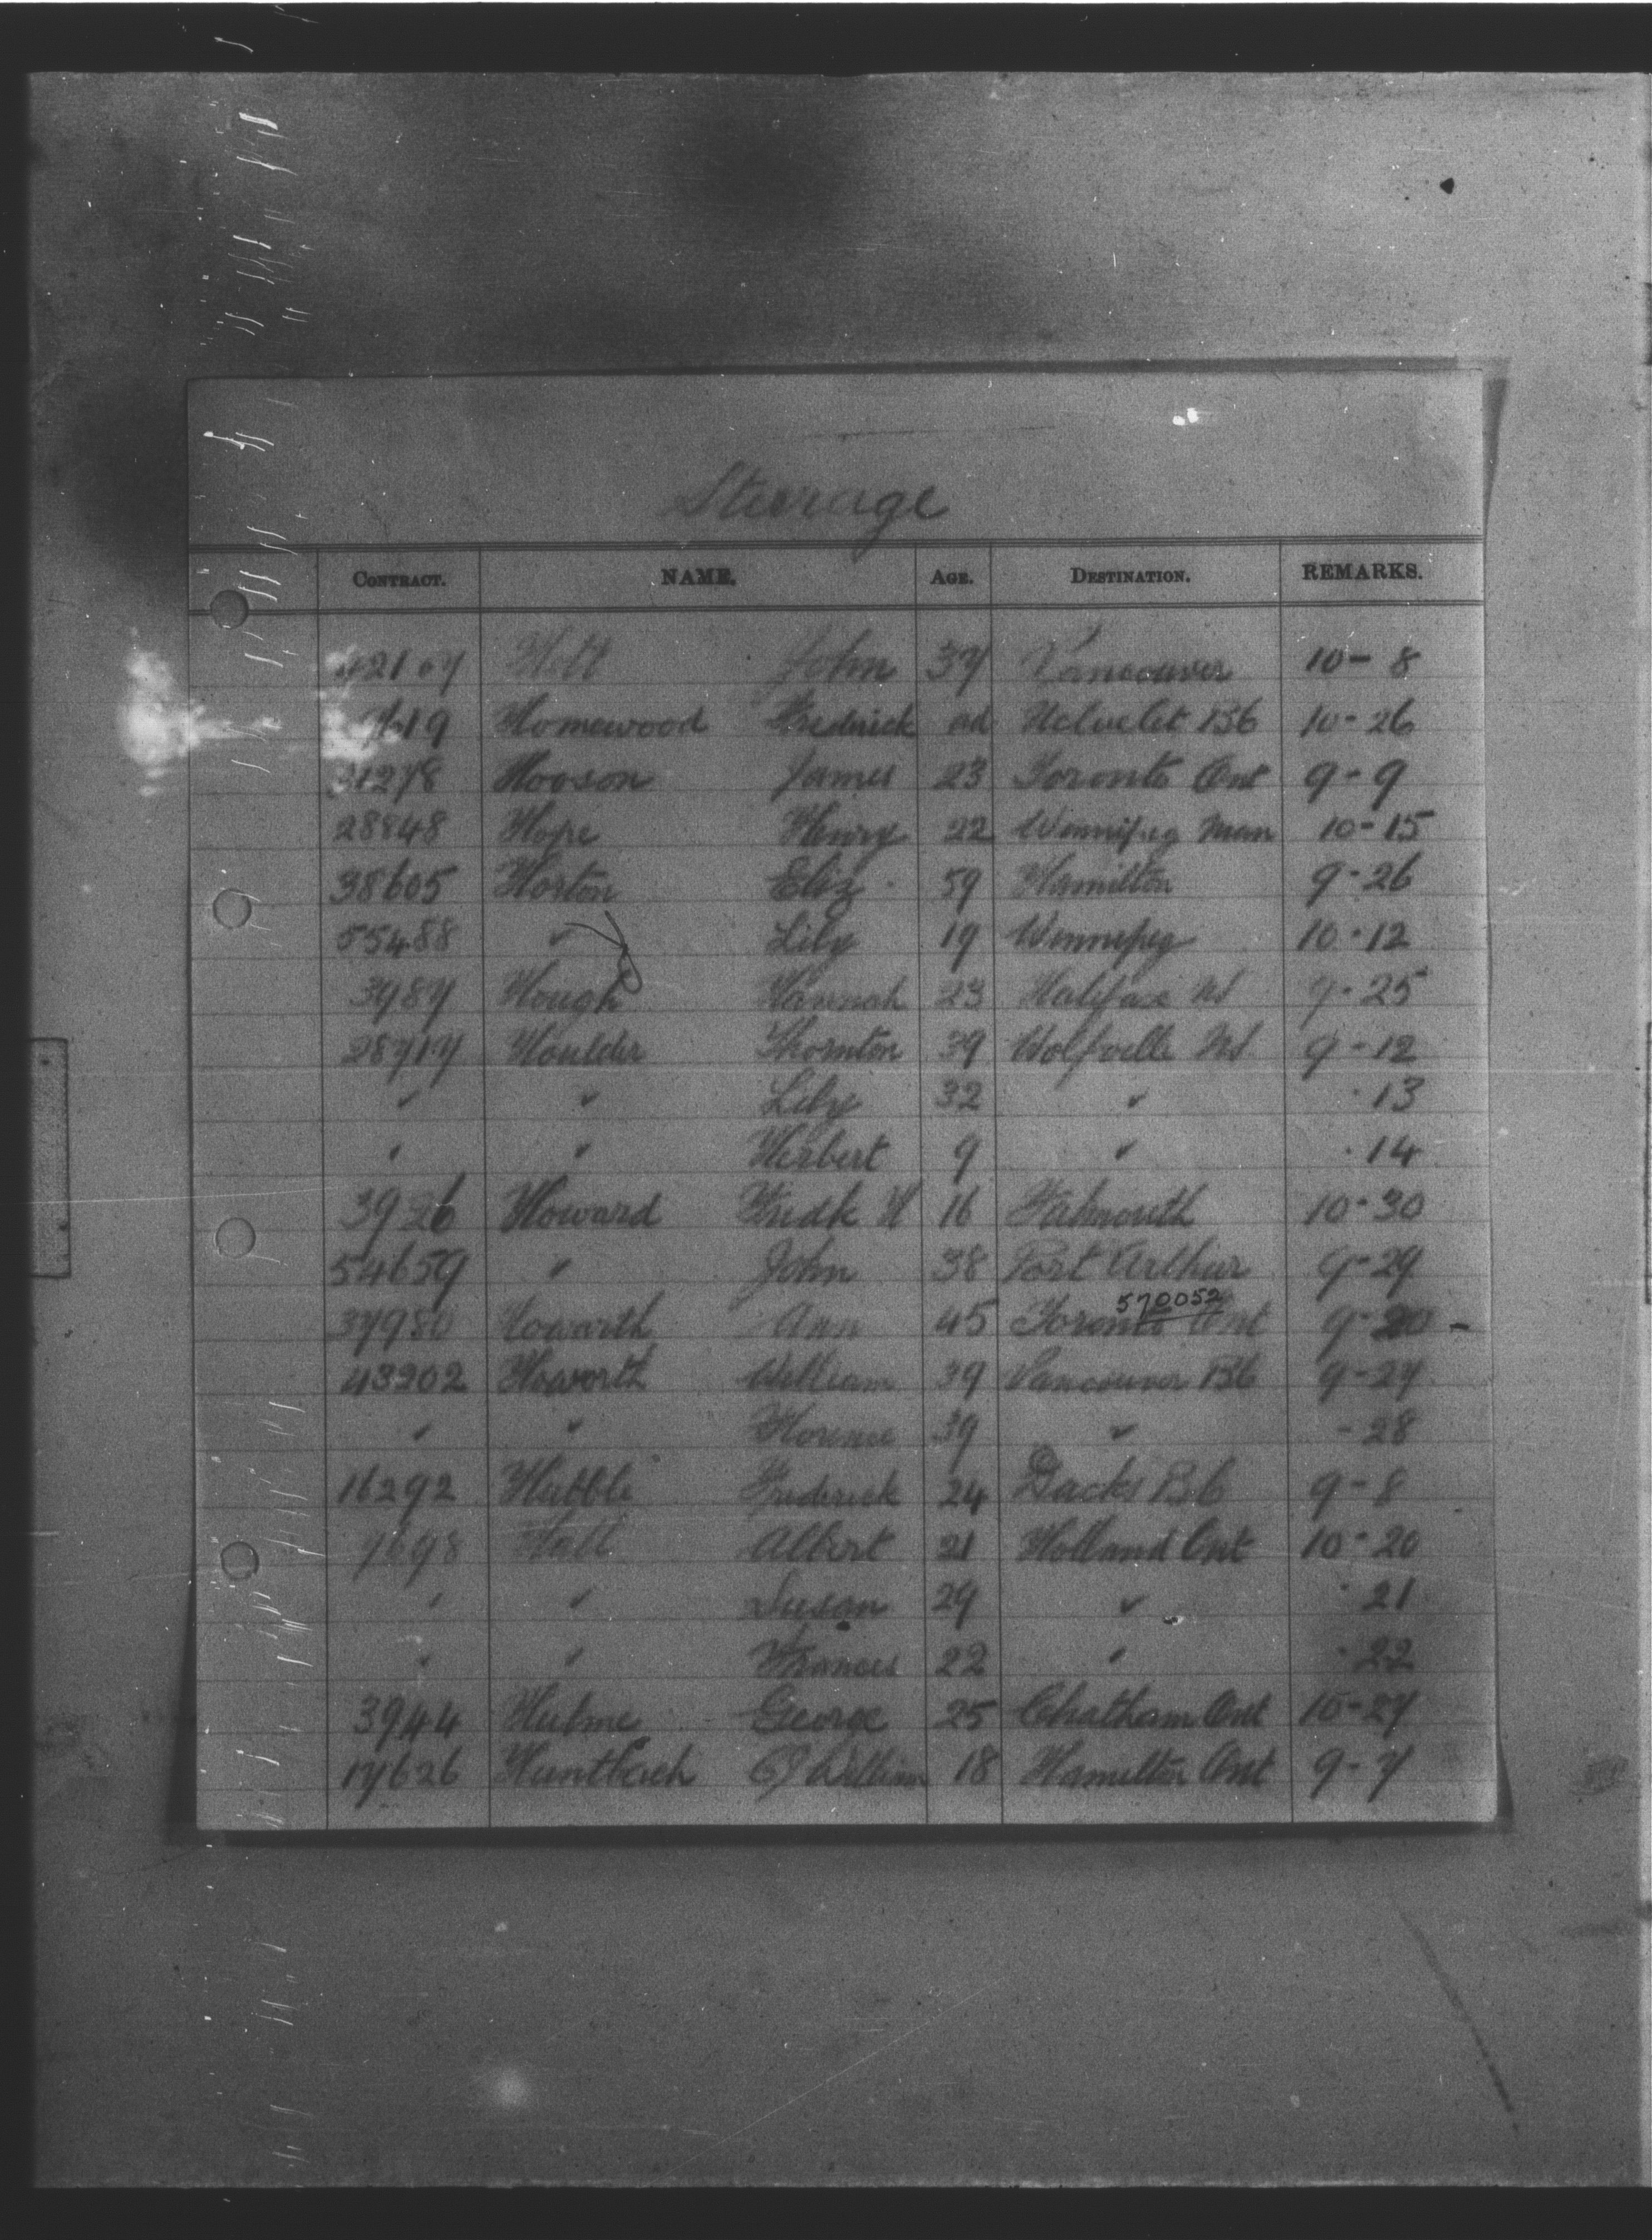 Steerage
CONTRACT. NAME. AGE. DESTINATION. REMARKS.
John 37 Vancouver 10-8
Homewood Fredrick ad B6 10-26
31278 Hooson James 23 Toronto Ont 9-9
28848 Hope Henry 22 Winnipeg Man 10-15
38605 Horton Eliz 59 Hamilton 9-26
55488 " Lily 19 Winnipeg 10-12
3987 Hough Hannah 23 Halifax NS 9-25
28717 Houlder Thornton 39 Wolfville NS 9-12
" " Lily 32 " 13
" " Herbert 9 " 14
3926 Howard Fredk H 16 Falmouth 10-30
54659 " John 38 Port Arthur 9-29
570052
37980 Howarth Ann 45 Toronto Ont 9-20 -
43202 Howorth William 39 Vancouver BC 9-27
" " Florence 39 " -28
16292 Hubble Frederick 24 BC 9-8
7698 Albert 21 Holland Ont 10-20
" " Susan 29 " 21
" " Frances 22 " 22
3944 Hulme George 25 Chatham Ont 10-27
17626 Huntbach William 18 Hamilton Ont 9-7